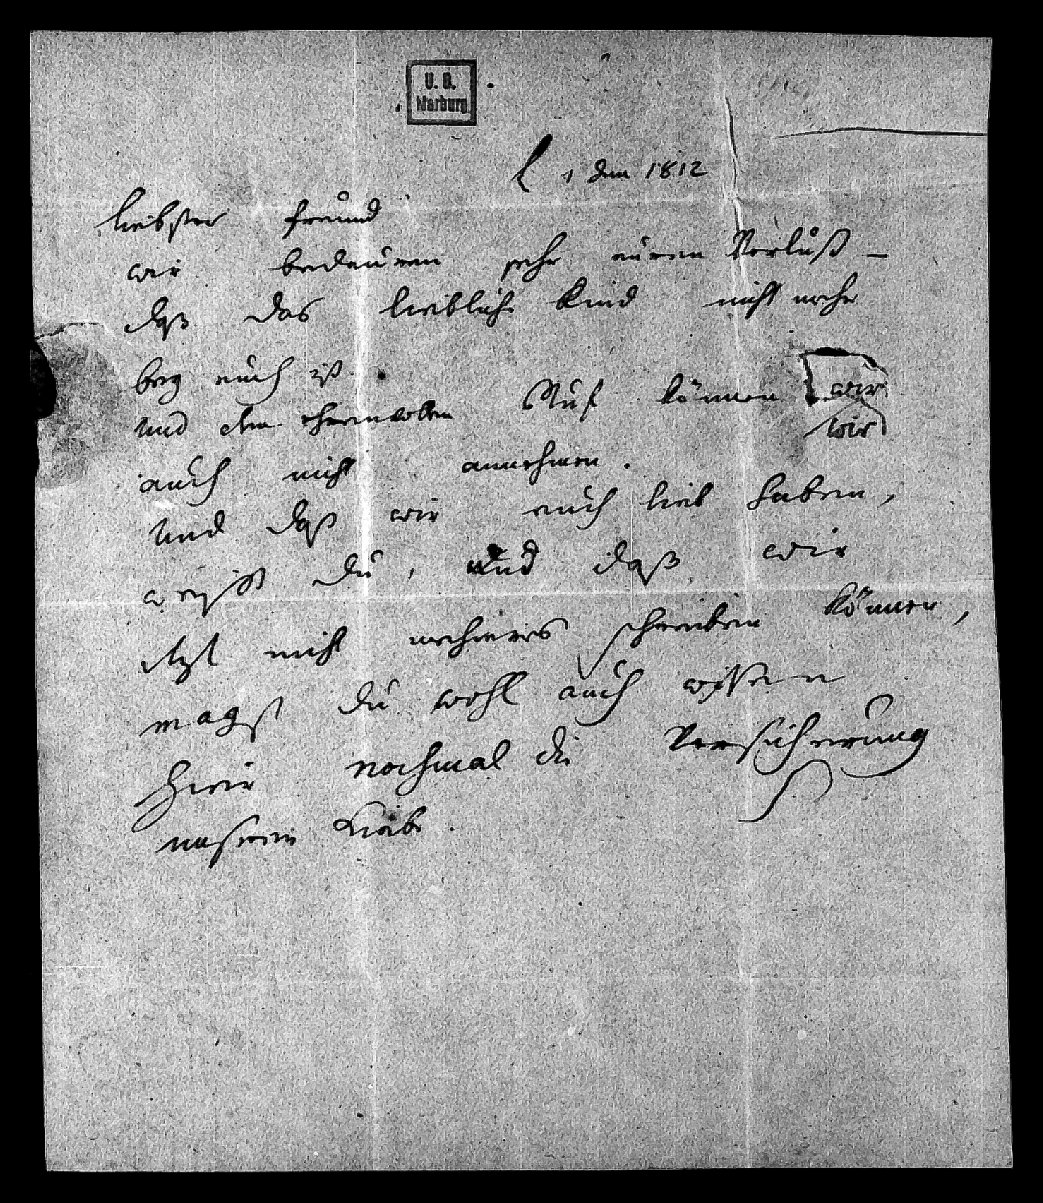 U. B.
Marburg
L, den 1812
liebster freund
wir bedauren sehr euren Verlust —
daß das liebliche Kind nicht mehr
bey euch ist.
und den Ruf können wir
wir
auch nicht annehmen.
Und daß wir euch lieb haben,
weißt du, und daß wir
itzt nicht mehreres schreiben können,
magst du wohl auch wissen
hier nochmal die Versicherung
unserer Liebe.